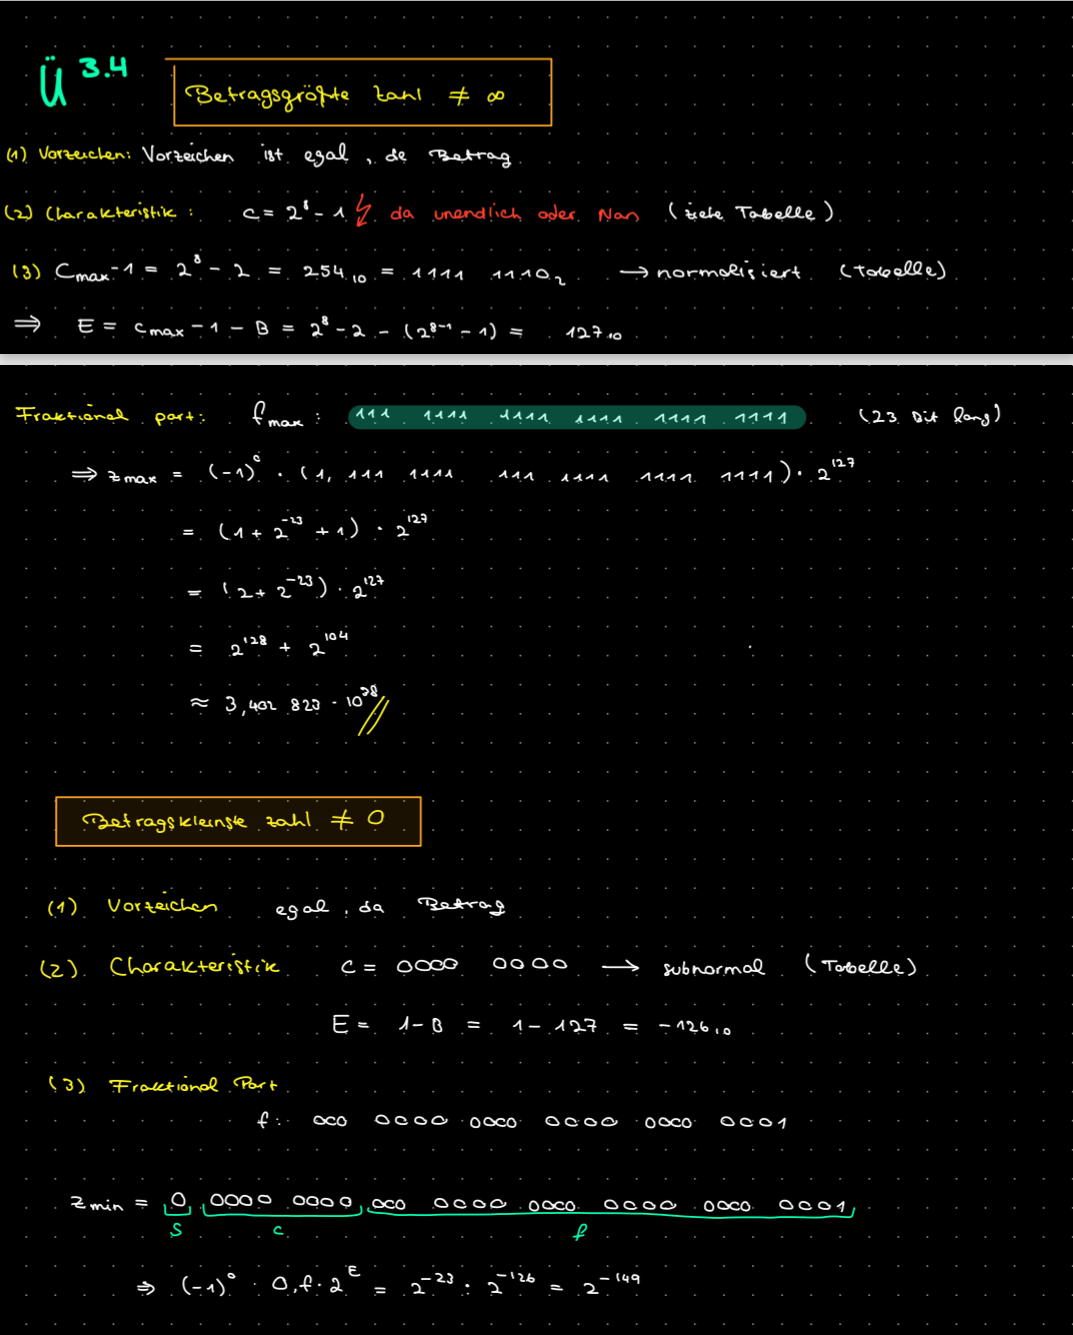 Ü 3.4
Betragsgrößte Zahl ≠ ∞
(1) Vorzeichen: Vorzeichen ist egal, de Betrag
(2) Charakteristik: c = 2⁸ - 1 ↯ da unendlich oder Nan (siehe Tabelle)
(3) Cmax - 1 = 2⁸ - 2 = 254₁₀ = 1111 1110₂ → normalisiert (Tabelle)
⇒ E = cmax - 1 - B = 2⁸ - 2 - (2⁸⁻¹ - 1) = 127₁₀
Fraktional part: fmax: 111 1111 1111 1111 1111 1111 (23 Bit lang)
⇒ zmax = (-1)⁰ · (1, 111 1111 111 1111 1111 1111) · 2¹²⁷
= (1 + 2⁻²³ + 1) · 2¹²⁷
= (2 + 2⁻²³) · 2¹²⁷
= 2¹²⁸ + 2¹⁰⁴
≈ 3,402 823 · 10³⁸
Betragskleinste Zahl ≠ 0
(1) Vorzeichen egal, da Betrag
(2) Charakteristik c = 0000 0000 → subnormal (Tabelle)
E = 1 - B = 1 - 127 = -126₁₀
(3) Fraktional Part
f: 000 0000 0000 0000 0000 0001
zmin = 0 0000 0000 000 0000 0000 0000 0000 0001
S c f
⇒ (-1)⁰ · 0,f · 2ᴱ = 2⁻²³ · 2⁻¹²⁶ = 2⁻¹⁴⁹